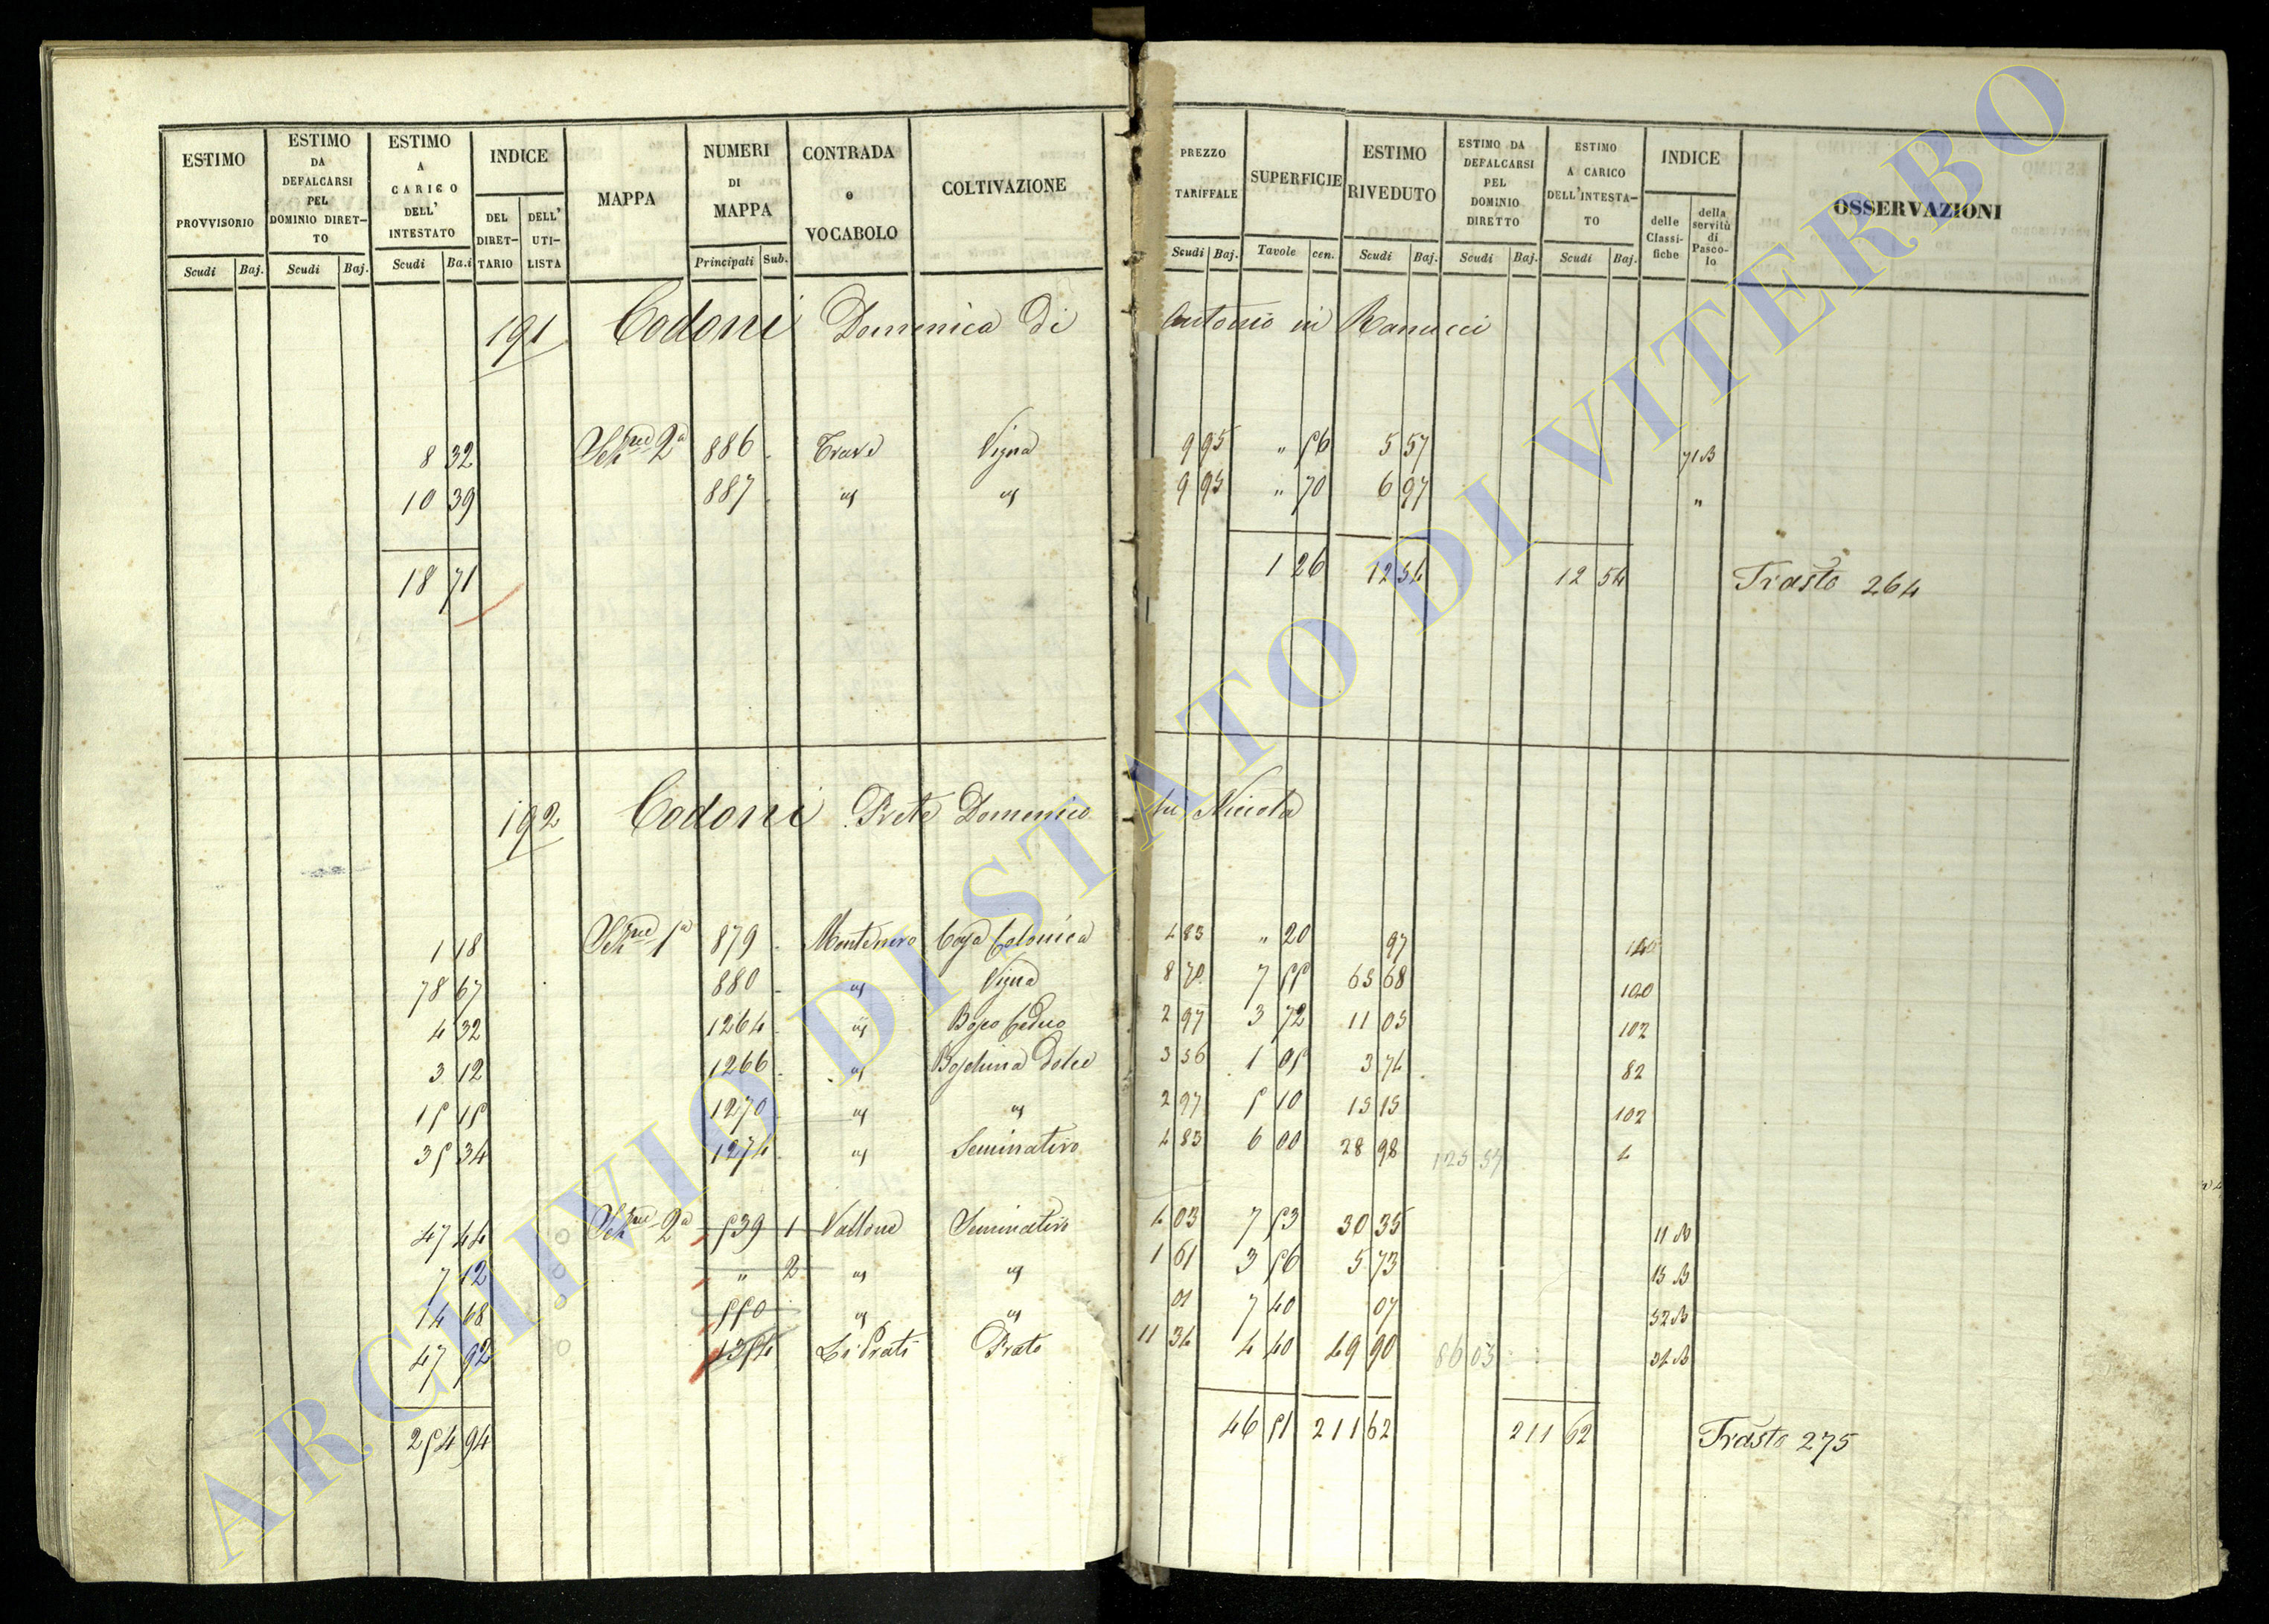 ESTIMO PROVVISORIO Scudi Baj.
ESTIMO DA DEFALCARSI PEL DOMINIO DIRET-TO Scudi Baj.
ESTIMO A CARICO DELL' INTESTATO Scudi Ba.i
INDICE DEL DIRET-TARIO DELL' UTI-LISTA
MAPPA
NUMERI DI MAPPA Principali Sub.
CONTRADA o VOCABOLO
COLTIVAZIONE
PREZZO TARIFFALE Scudi Baj.
SUPERFICIE Tavole cen.
ESTIMO RIVEDUTO Scudi Baj.
ESTIMO DA DEFALCARSI PEL DOMINIO DIRETTO Scudi Baj.
ESTIMO A CARICO DELL'INTESTA-TO Scudi Baj.
INDICE delle Classi-fiche della servitù di Pasco-lo
OSSERVAZIONI
191 Codoni Domenica di Antonio in Ranucci
8 32 2a 886 Trave Vigna 9 95 " 56 5 57 71 B
10 39 887 " " 9 95 " 70 6 97 "
18 71 1 26 12 54 12 54 Trasto 264
192 Codoni Prete Domenico fu Niccola
1 18 1a 879 Montenero Casa Colonica 4 83 " 20 97
78 67 880 " Vigna 8 70 7 55 65 68 100
4 32 1264 " Bosco Ceduo 2 97 3 72 11 05 102
3 12 1266 " Boschina dolce 3 56 1 05 3 74 82
15 15 1270 " " 2 97 5 10 15 15 102
35 34 1274 " Seminativo 4 83 6 00 28 98 125 57 4
47 44 2a 539 1 Vallone Seminativo 4 03 7 53 30 35 11 B
7 12 " 2 " " 1 61 3 56 5 73 15 B
14 68 550 " " 01 7 40 07 52 B
47 92 1354 Li Prati Prato 11 34 4 40 49 90 86 05 34 B
254 94 46 51 211 62 211 62 Trasto 275
ARCHIVIO DI STATO DI VITERBO